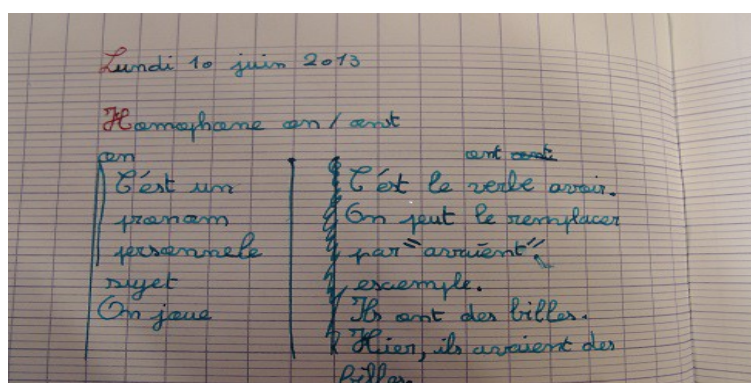 Lundi 10 juin 2013
Homophone on / ont
on
C'est un
pronom
personnele
sujet
On joue
ont ont
C'est le verbe avoir.
On peut le remplacer
par "avaient".
excemple.
Ils ont des billes.
Hier, ils avaient des
billes.